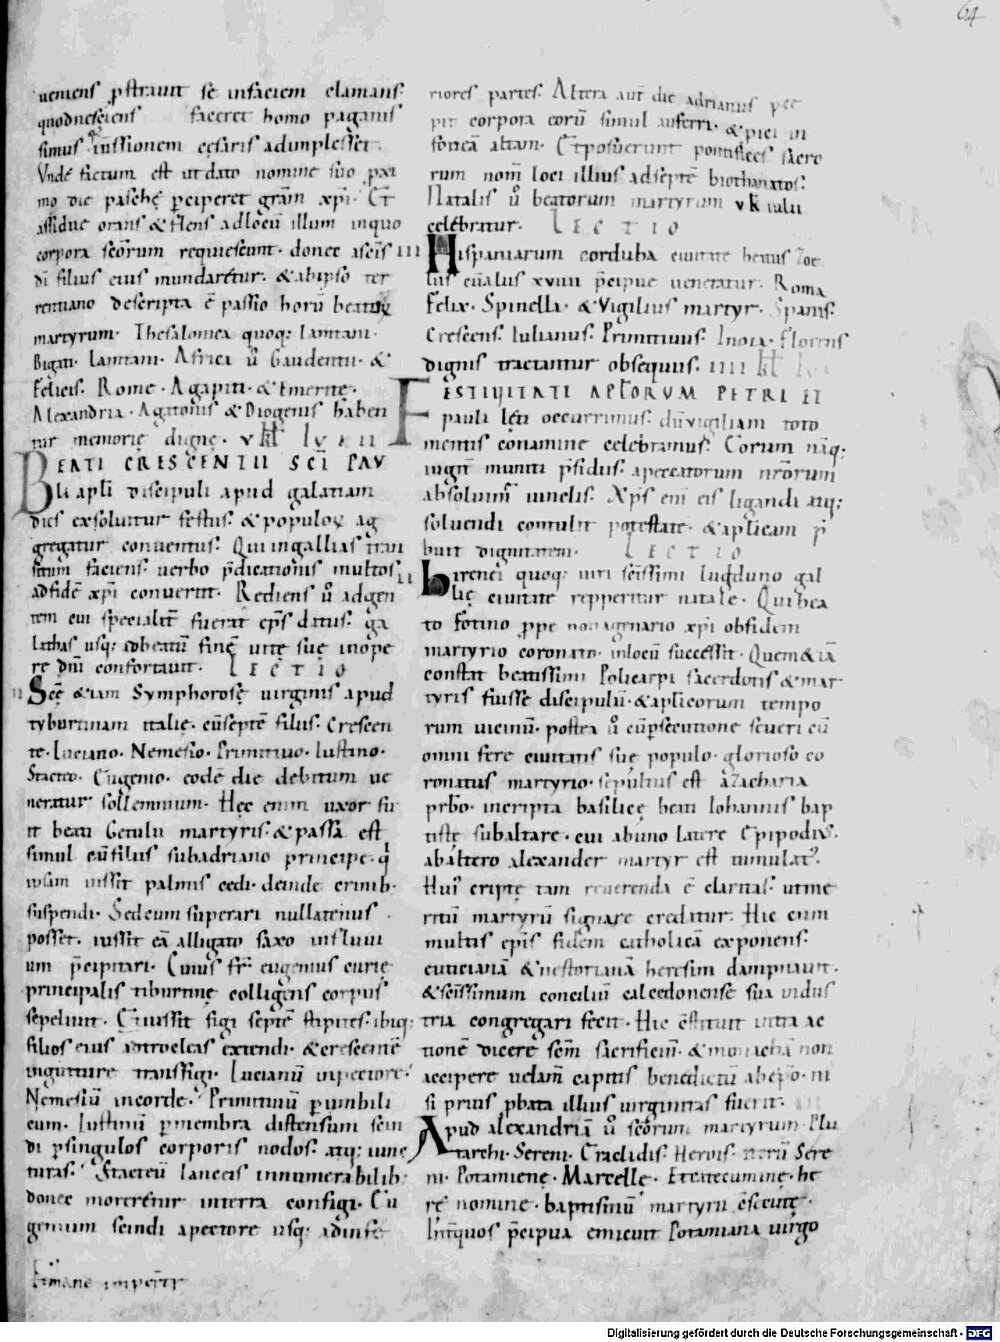 64
ueniens pstrauit se infaciem clamans.
quodnesciens faceret homo paganis
simus iussionem cesaris adimplesset.
Vnde factum est ut dato nomine suo pxi
mo die pasche pciperet gram xpi. Et
assidue orans & flens adlocum illum inquo
corpora scorum requiescunt. donec ascis
di filius eius mundaretur. & abipso ter
rentiano descripta e passio horu beatoꝝ
martyrum. Thesalonica quoq; Iamtani.
Bigati. Iamtani. Africa u Gaudentii. &
Felicis. Rome. Agapiti. & Emerite.
Alexandria. Agatonis & Diogenis haben
tur memorie digne. v kł Iulii
BEATI CRESCENTII SCI PAV
li apli discipuli apud galatiam
dies exsoluitur festus. & populoꝝ ag
gregatur conuentus. Qui ingallias tran
situm faciens. uerbo pdicationis multos
adfide xpi conuertit. Rediens u adgen
tem cui specialit fuerat eps datus. ga
lathas usq; adbeatu fine uite sue inope
re dni confortauit. LECTIO
II Sce & iam Symphorose uirginis apud
tyburtinam italie. cu septe filiis. Crescen
te. Luciano. Nemesio. Primitiuo. Iustino.
Stacteo. Eugenio. eode die debitum ue
neratur sollemnium. Hec enim uxor fu
it beati Getulii martyris. & passa est
simul cu filiis subadriano principe. q
ipsam iussit palmis cedi. deinde crinib.
suspendi. Sed cum superari nullatenus
posset. iussit ea alligato saxo influui
um pcipitari. Cuius fr eugenius curie
principalis tiburtine colligens corpus
sepeliuit. Et iussit figi septe stipites. ibiq;
filios eius adtrocleas extendi. & crescente
ingutture transfigi. Lucianu inpectore.
Nemesiu incorde. Primitiuu p umbili
cum. Iustinu p membra distensum scin
di p singulos corporis nodos. atq; iunc
turas. Stacteu lanceis innumerabilib;
donec moreretur interra configi. Eu
genium scindi apectore usq; adinfe
riores partes. Altera aut die adrianus pce
pit corpora eoru simul auferri. & pici in
fouea altam. Et posuerunt pontifices sacro
rum nom loci illius adsepte biothanatos.
Natalis u beatorum martyrum v k iulii
celebratur. LECTIO
III Hispaniarum corduba ciuitate beatus Zoe
lus cu aliis xviiii pcipue ueneratur. Roma
Felix. Spinella. & Vigilius martyr. Spanis.
Crescens. Iulianus. Primitiuus. Inoia. Florens
dignis tractantur obsequiis. IIII kł Iul
FESTIVITATI APLORVM PETRI ET
pauli leti occurrimus. du uigiliam toto
mentis conamine celebramus. Eorum naq;
iugit muniti psidiis. apeccatorum nrorum
absoluim uinclis. Xps eni eis ligandi atq;
soluendi contulit potestate. & aplicam p
buit dignitatem. LECTIO
II hirenei quoq; uiri scissimi lugduno gal
lie ciuitate repperitur natale. Qui bea
to fotino ppe nonagenario xpi obfidem
martyrio coronato. inlocu successit. Quem & ia
constat beatissimi Policarpi sacerdotis & mar
tyris fuisse discipulu. & aplicorum tempo
rum uicinu. postea u cu psecutione seueri cu
omni fere ciuitatis sue populo. glorioso co
ronatus martyrio. sepultus est a Zacharia
prbo. incripta basilice beati Iohannis bap
tiste subaltare. cui abuno latere Epipodius.
abaltero alexander martyr est tumulat.
Hui cripte tan reuerenda e claritas. ut me
ritu martyru signare creditur. Hic cum
multis epis fidem catholica exponens.
euticiana & nestoriana heresim dampnauit.
& scissimum conciliu calcedonense sua indus
tria congregari fecit. Hic estituit intra ac
tione dicere scm sacrificiu. & monacha non
accipere uelam capitis benedictu abepo. ni
si prius pbata illius uirginitas fuerit.
Apud alexandria u scorum martyrum Plu
tarchi. Sereni. Eraclidis. Herois. iteru Sere
ni. Potamiene. Marcelle. Et catecumine. he
re nomine. baptismu martyrii esecute.
Int quos pcipua emicuit Potamiana uirgo
Digitalisierung gefördert durch die Deutsche Forschungsgemeinschaft - DFG